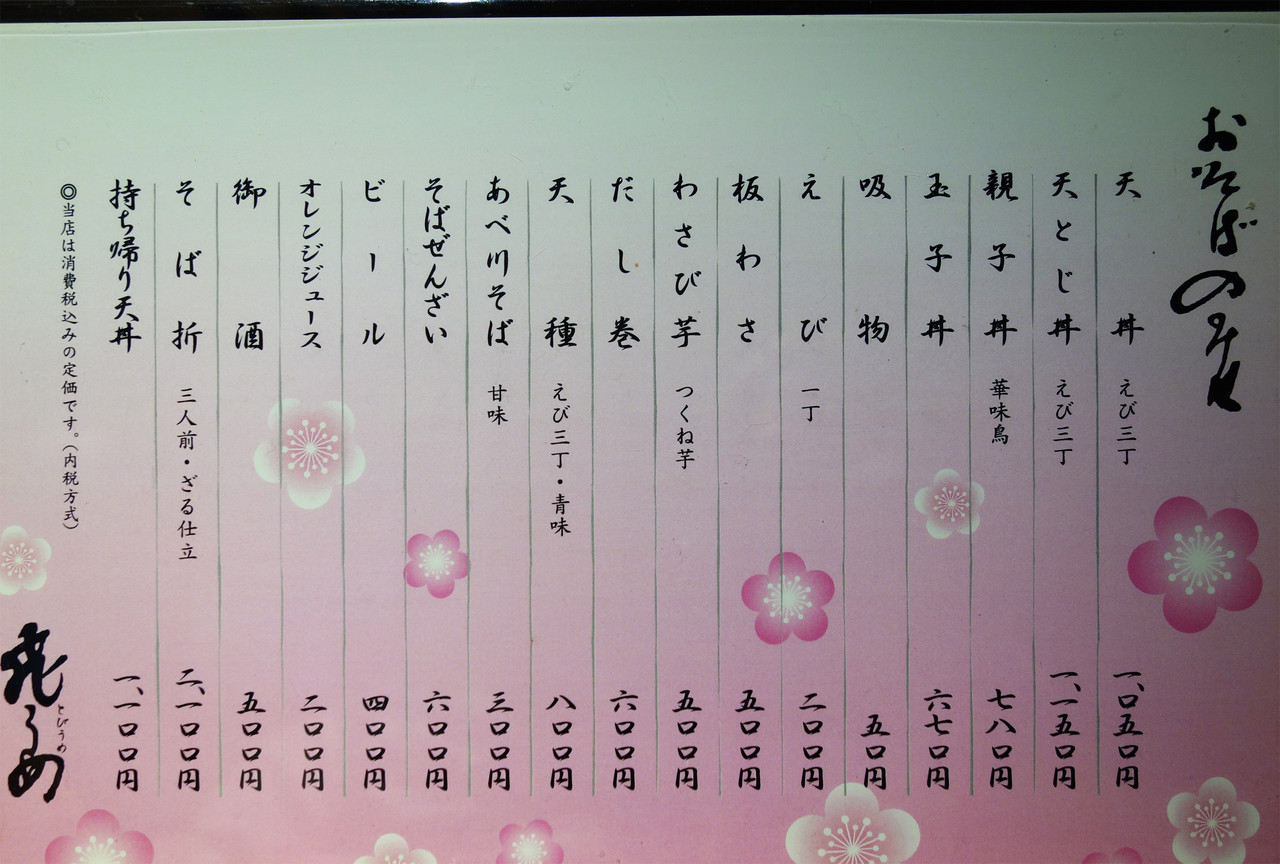 おそばの
天丼 えび三丁 一、〇五〇円
天とじ丼 えび三丁 一、一五〇円
親子丼 華味鳥 七八〇円
玉子丼 六七〇円
吸物 五〇円
えび 一丁 二〇〇円
板わさ 五〇〇円
わさび芋 つくね芋 五〇〇円
だし巻 六〇〇円
天種 えび三丁・青味 八〇〇円
あべ川そば 甘味 三〇〇円
そばぜんざい 六〇〇円
ビール 四〇〇円
オレンジジュース 二〇〇円
御酒 五〇〇円
そば折 三人前・ざる仕立 二、一〇〇円
持ち帰り天丼 一、一〇〇円
◎当店は消費税込みの定価です。（内税方式）
とびうめ